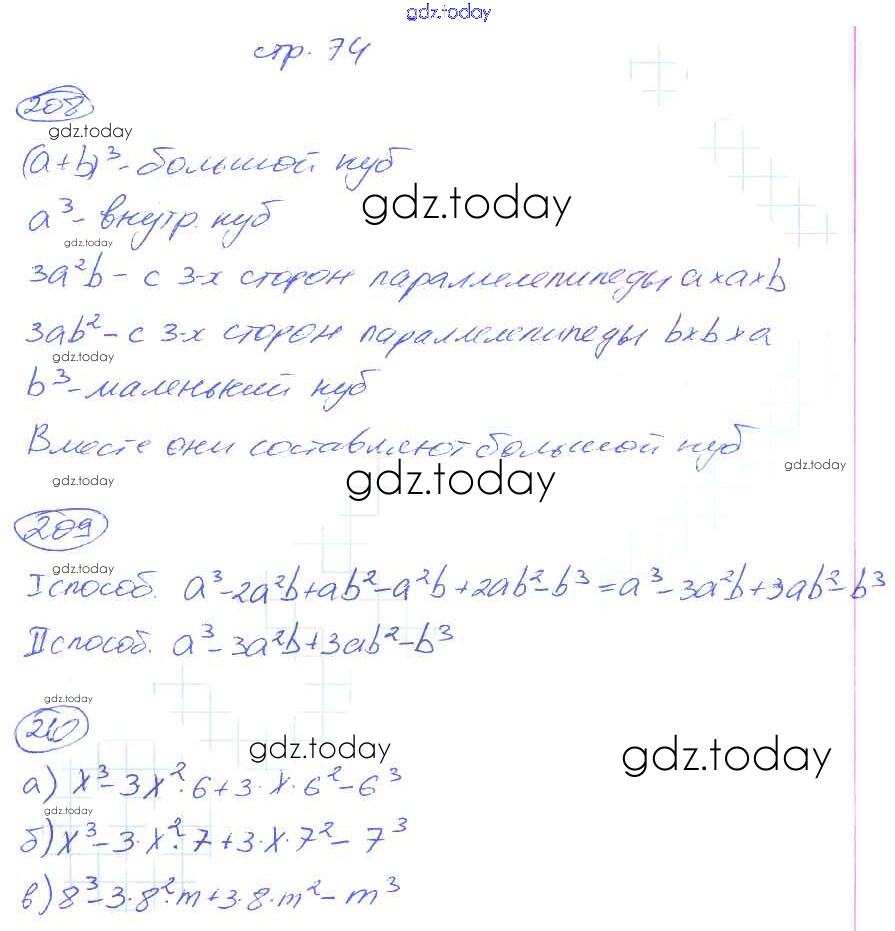 gdz.today
стр. 74
208
gdz.today
(a+b)³ - большой куб
a³ - внутр. куб
gdz.today
gdz.today
3a²b - с 3-х сторон параллелепипеды a×a×b
3ab² - с 3-х сторон параллелепипеды b×b×a
gdz.today
b³ - маленький куб
Вместе они составляют большой куб
gdz.today
gdz.today
gdz.today
209
gdz.today
I способ. a³-2a²b+ab²-a²b+2ab²-b³=a³-3a²b+3ab²-b³
II способ. a³-3a²b+3ab²-b³
gdz.today
210
gdz.today
gdz.today
а) x³-3x²·6+3·x·6²-6³
gdz.today
б) x³-3·x²·7+3·x·7²-7³
в) 8³-3·8²·m+3·8·m²-m³